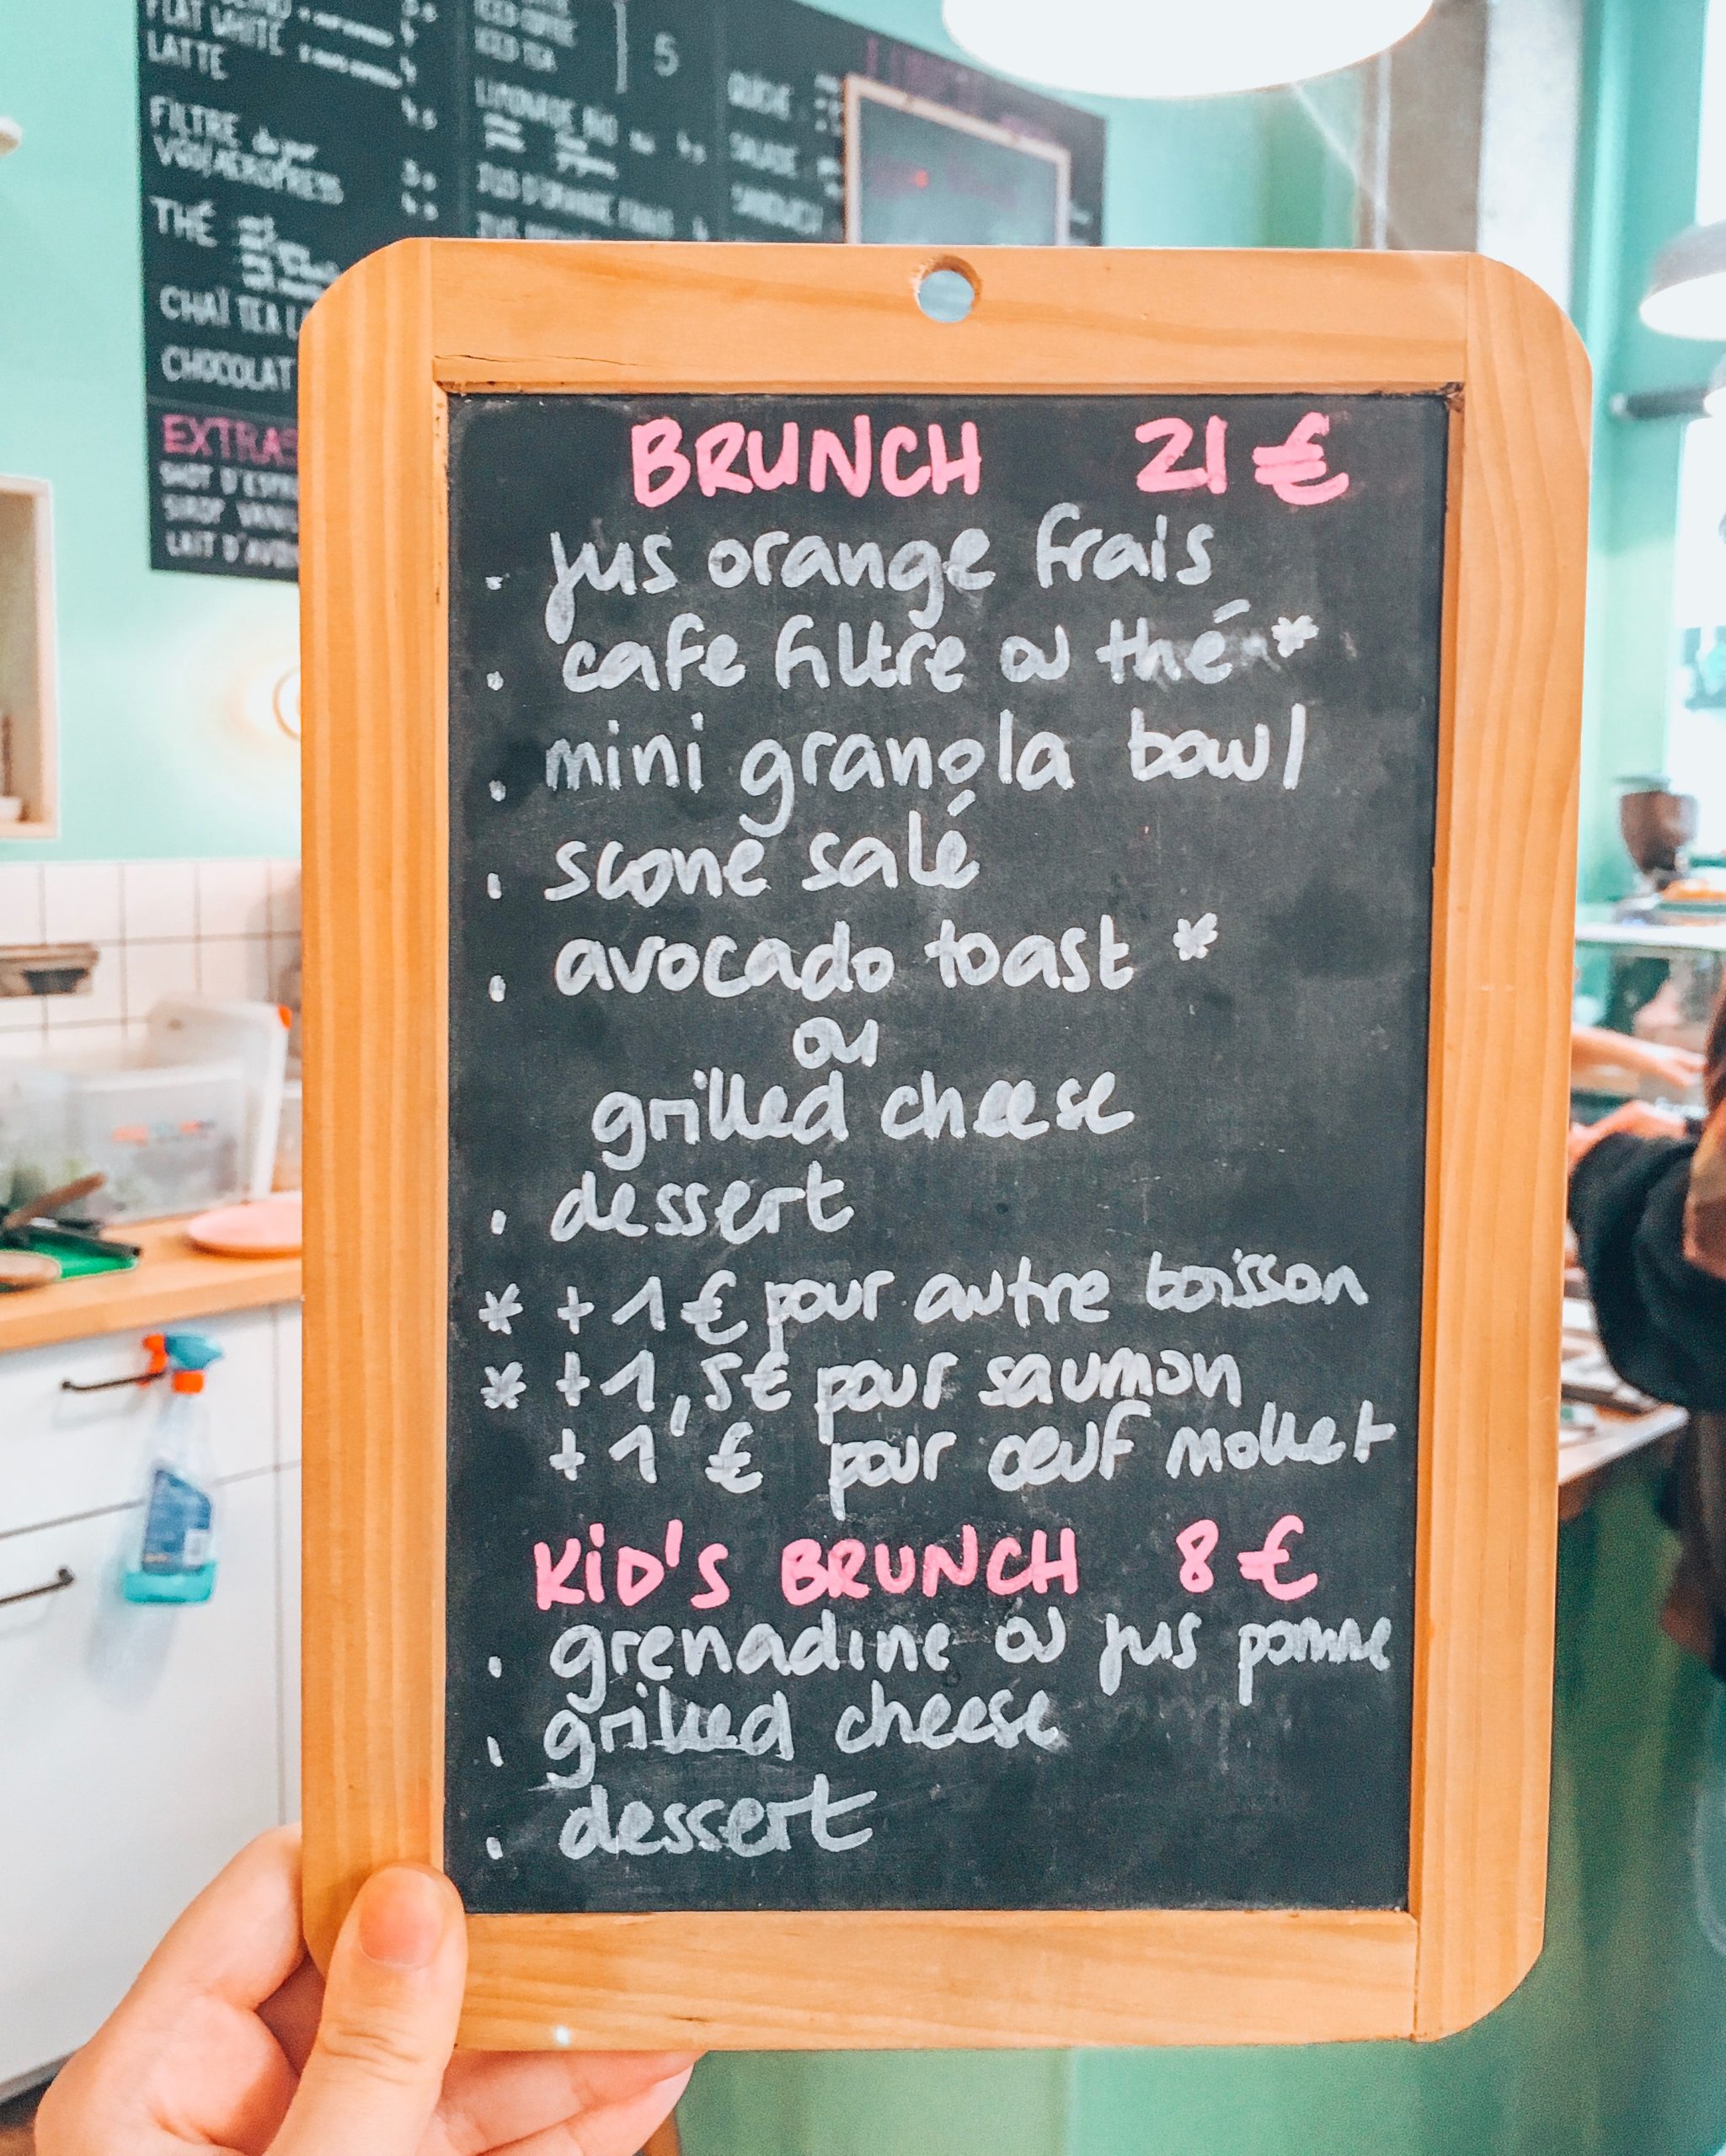 FLAT WHITE
LATTE
FILTRE du jour
V60/AEROPRESS
THÉ
CHAÏ TEA L
CHOCOLAT
EXTRAS
SHOT D'ESPR
SIROP VANIL
LAIT D'AVOI
ICED COFFEE
ICED TEA
5
LIMONADE BIO
JUS D'ORANGE FRAIS
QUICHE
SALADE
SANDWICH
BRUNCH 21 €
. jus orange frais
. cafe filtre ou thé *
. mini granola bowl
. scone salé
. avocado toast *
ou
grilled cheese
. dessert
* +1 € pour autre boisson
* +1,5€ pour saumon
+1 € pour œuf mollet
KiD's BRUNCH 8 €
. grenadine où jus pomme
. grilled cheese
. dessert